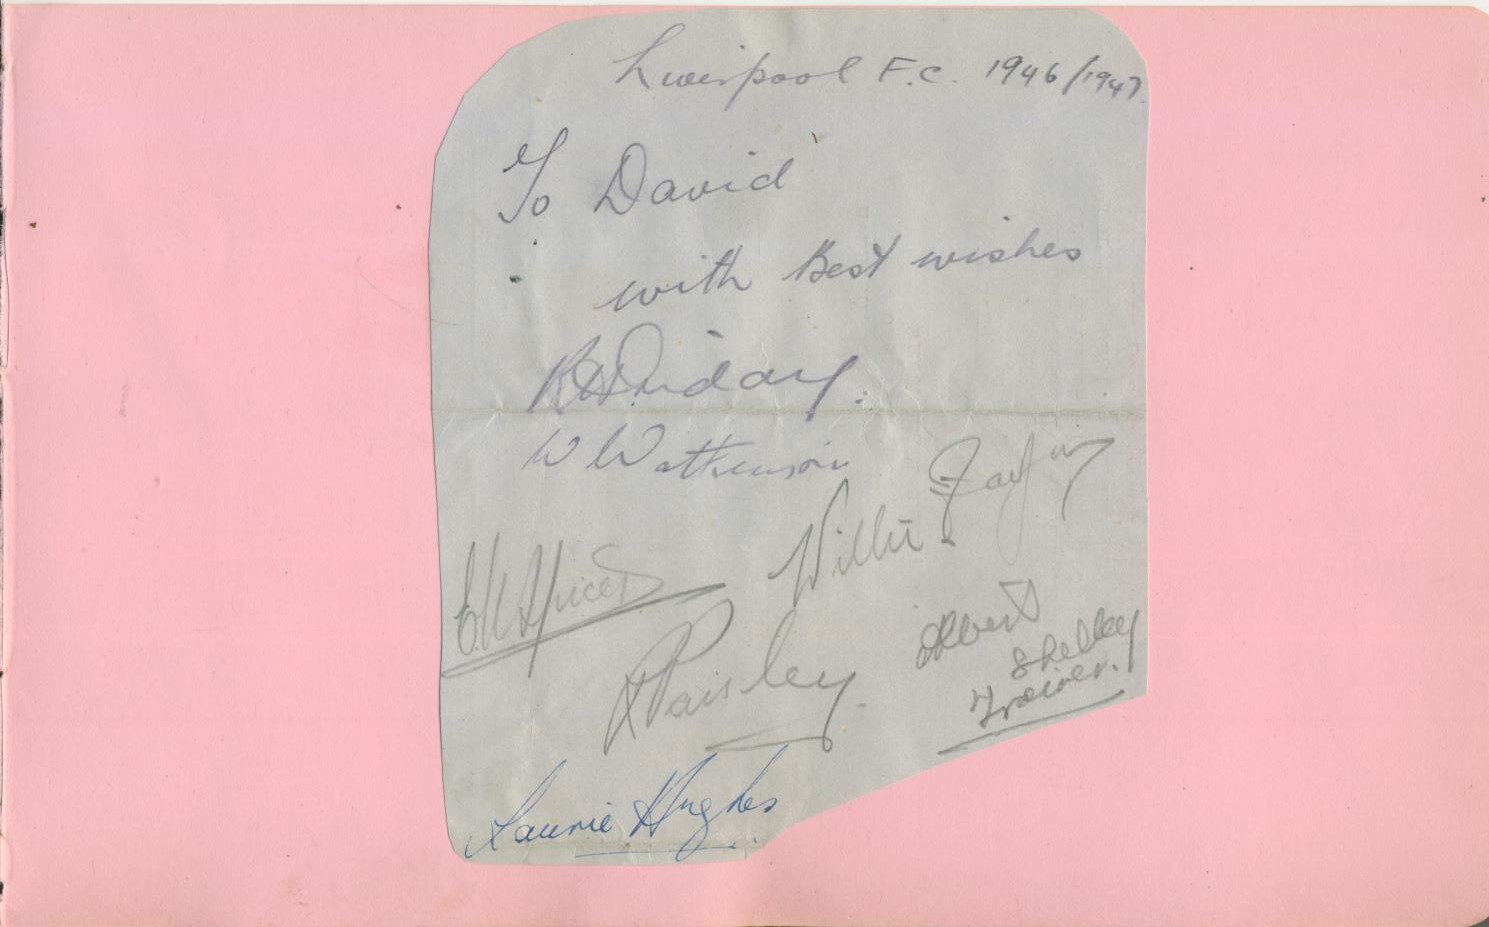 Liverpool F.C. 1946/1947.
To David
with Best wishes
R H Priday.
W Watkinson
Willie Fagan
E.W. Spicer
R Paisley.
Albert
Shelley
Trainer.
Laurie Hughes